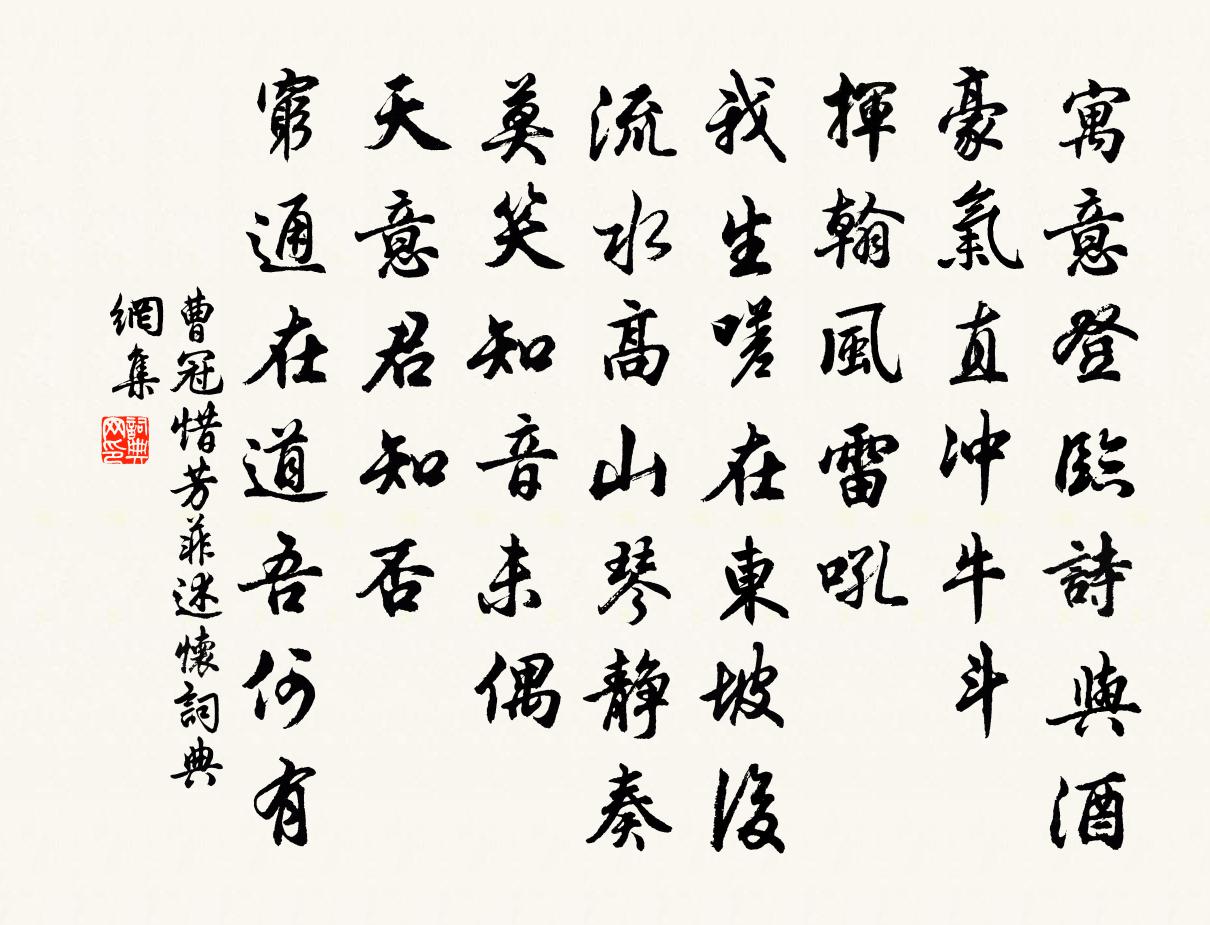 寓意登臨詩與酒
豪氣直沖牛斗
揮翰風雷吼
我生嗟在東坡後
流水高山琴靜奏
莫笑知音未偶
天意君知否
窮通在道吾何有
曹冠惜芳菲述懷詞典
網集
詞典
网印